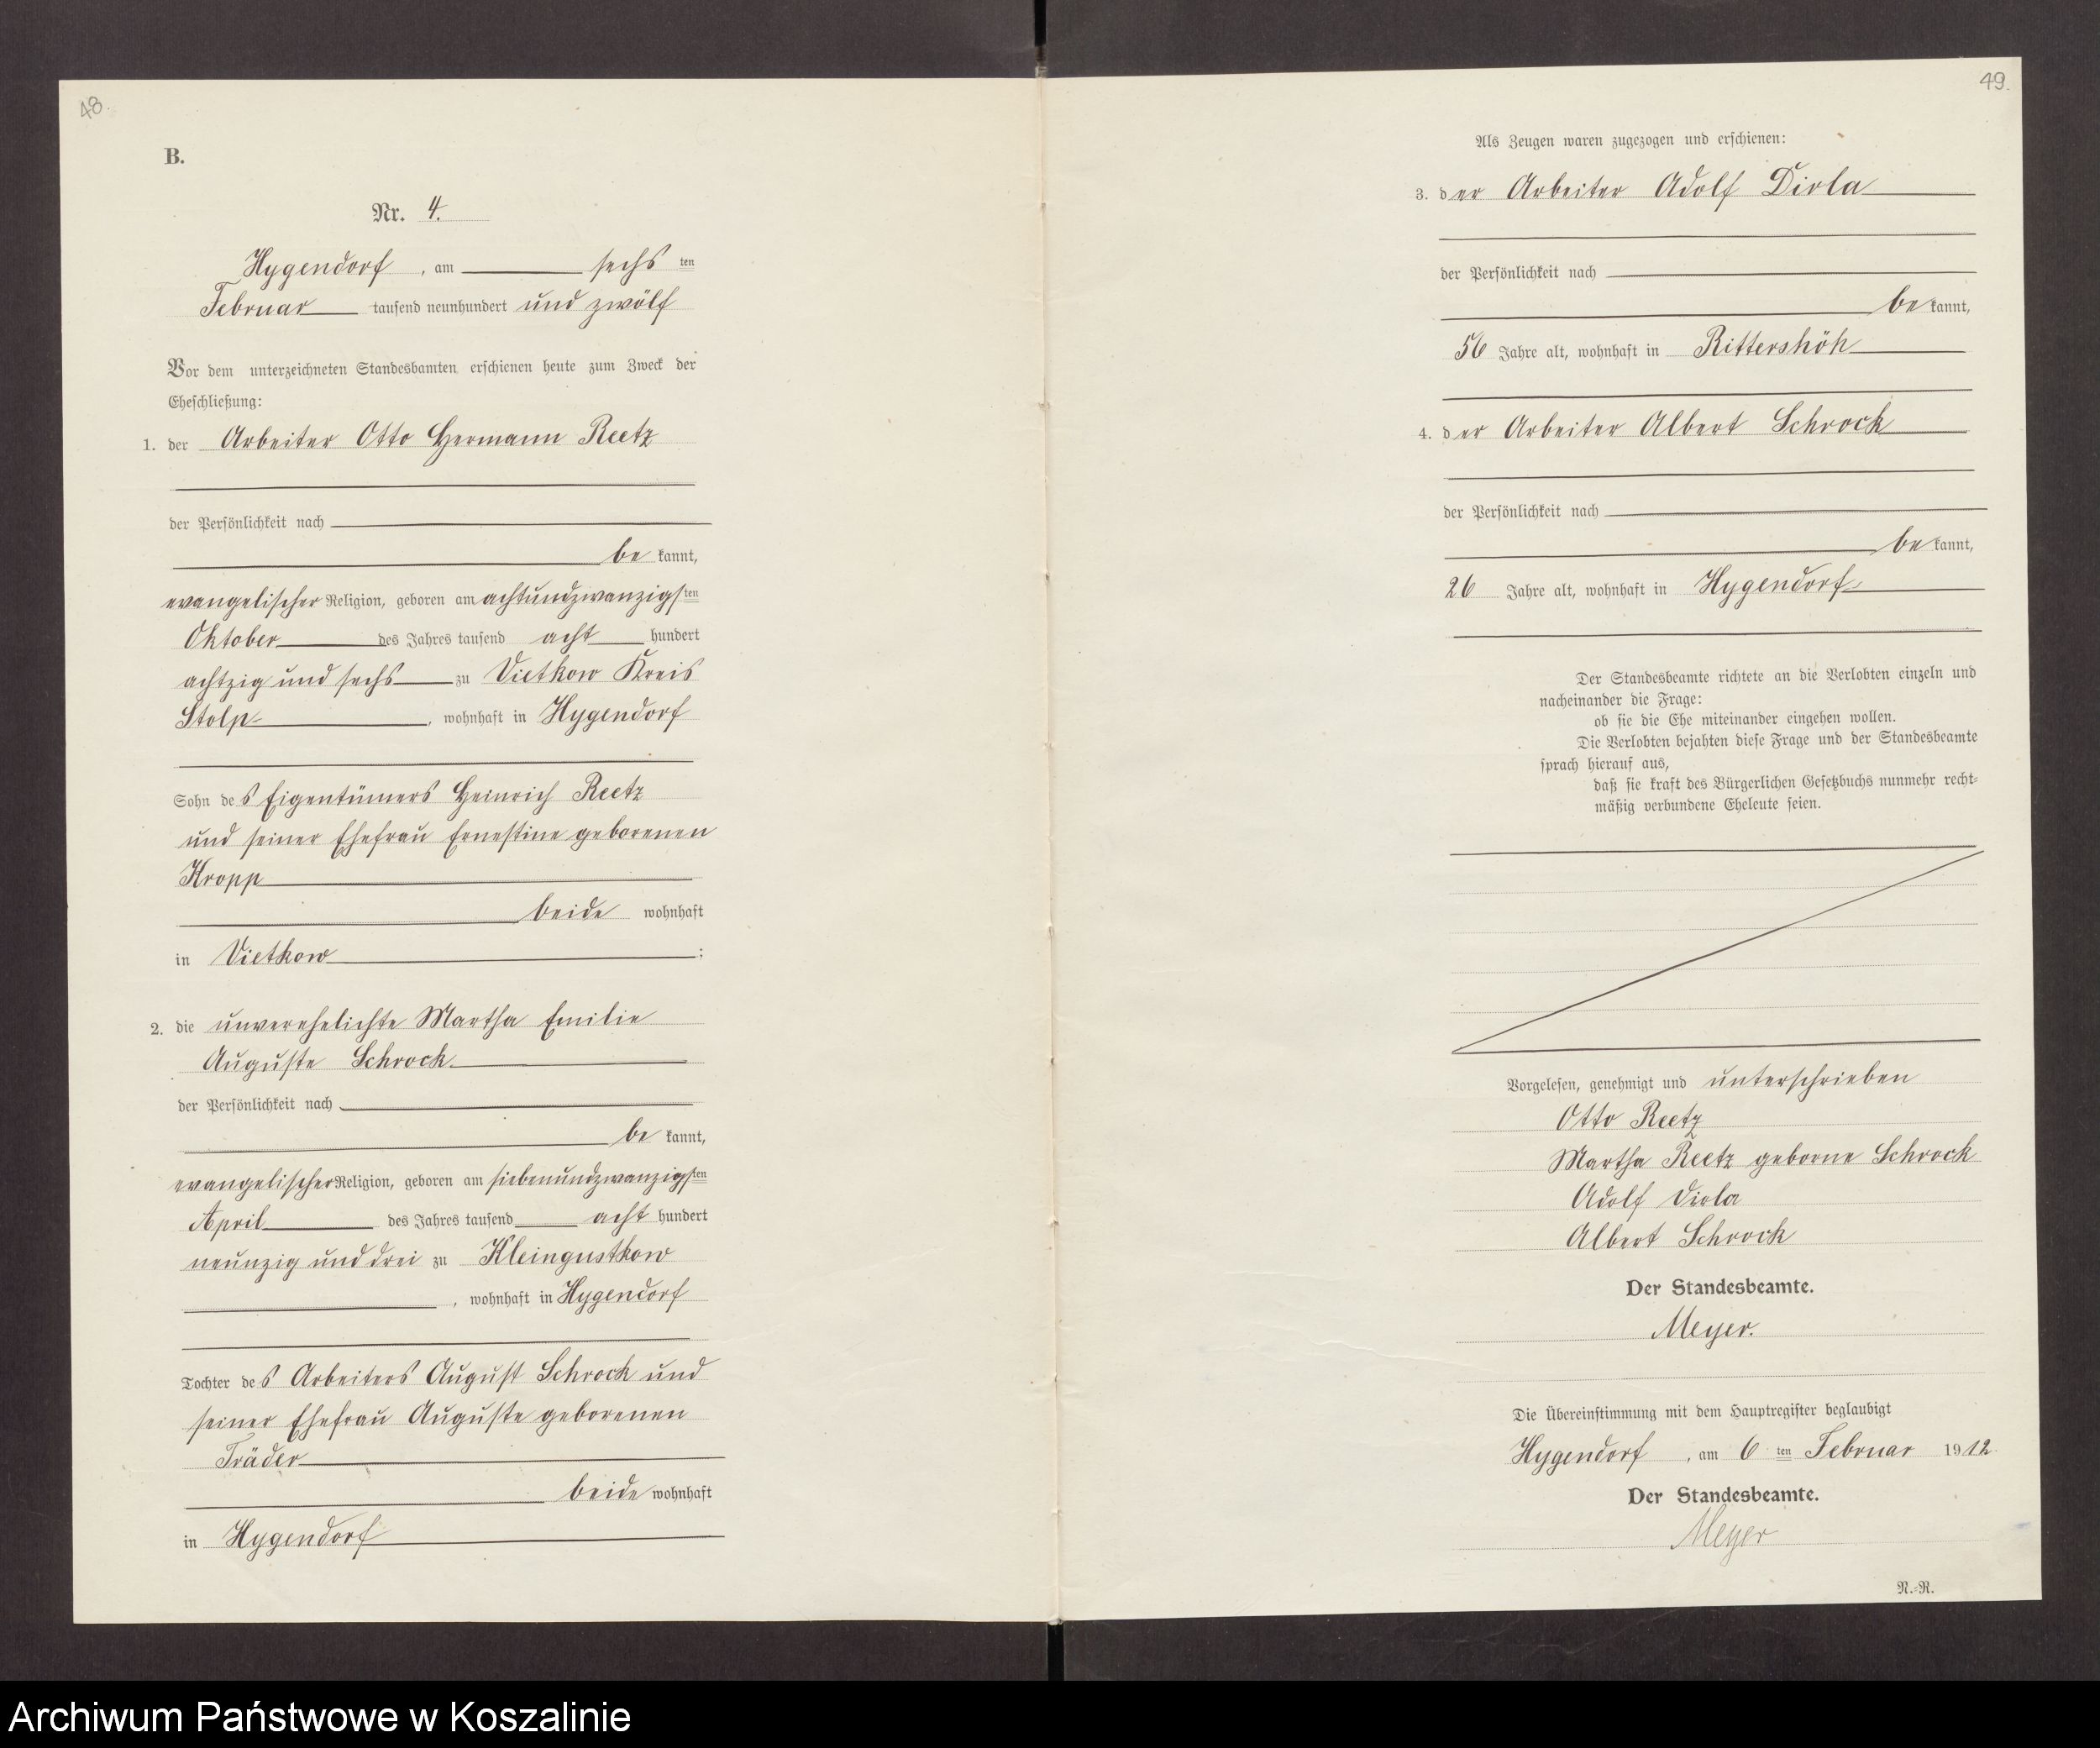 48.
B.
Nr. 4.
Hygendorf, am sechs ten
Februar tausend neunhundert und zwölf
Vor dem unterzeichneten Standesbamten erschienen heute zum Zweck der
Eheschließung:
1. der Arbeiter Otto Hermann Reetz
der Persönlichkeit nach
be kannt,
evangelischer Religion, geboren am achtundzwanzigsten
Oktober des Jahres tausend acht hundert
achtzig und sechs zu Vietkow Kreis
Stolp, wohnhaft in Hygendorf
Sohn des Eigentümers Heinrich Reetz
und seiner Ehefrau Ernestine geborenen
Kropp
beide wohnhaft
in Vietkow;
2. die unverehelichte Martha Emilie
Auguste Schrock
der Persönlichkeit nach
be kannt,
evangelischer Religion, geboren am siebenundzwanzigsten
April des Jahres tausend acht hundert
neunzig und drei zu Kleingustkow
, wohnhaft in Hygendorf
Tochter des Arbeiters August Schrock und
seiner Ehefrau Auguste geborenen
Träder
beide wohnhaft
in Hygendorf
49.
Als Zeugen waren zugezogen und erschienen:
3. der Arbeiter Adolf Dirla
der Persönlichkeit nach
be kannt,
56 Jahre alt, wohnhaft in Rittershöh
4. der Arbeiter Albert Schrock
der Persönlichkeit nach
be kannt,
26 Jahre alt, wohnhaft in Hygendorf
Der Standesbeamte richtete an die Verlobten einzeln und
nacheinander die Frage:
ob sie die Ehe miteinander eingehen wollen.
Die Verlobten bejahten diese Frage und der Standesbeamte
sprach hierauf aus,
daß sie kraft des Bürgerlichen Gesetzbuchs nunmehr recht-
mäßig verbundene Eheleute seien.
Vorgelesen, genehmigt und unterschrieben
Otto Reetz
Martha Reetz geborne Schrock
Adolf Dirla
Albert Schrock
Der Standesbeamte.
Meyer.
Die Übereinstimmung mit dem Hauptregister beglaubigt
Hygendorf, am 6 ten Februar 1912.
Der Standesbeamte.
Meyer
N.-R.
Archiwum Państwowe w Koszalinie